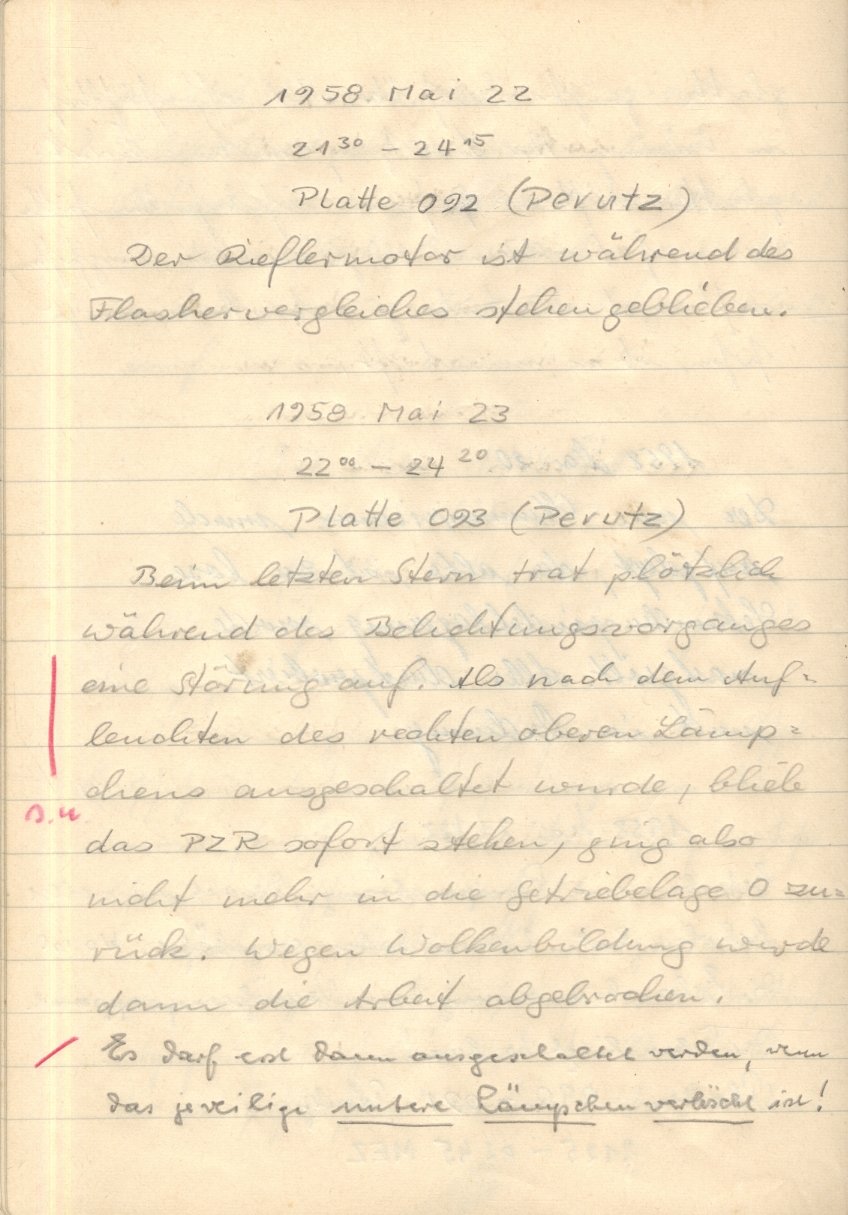 1958. Mai 22
21³⁰ – 24¹⁵
Platte 092 (Perutz)
Der Rieflermotor ist während des
Flashervergleiches stehengeblieben.
1958 Mai 23
22⁰⁰ – 24²⁰
Platte 093 (Perutz)
Beim letzten Stern trat plötzlich
während des Belichtungsvorganges
eine Störung auf. Als nach dem Auf=
leuchten des rechten oberen Lämp=
chens ausgeschaltet wurde, blieb
das PZR sofort stehen, ging also
nicht mehr in die Getriebelage 0 zu=
rück. Wegen Wolkenbildung wurde
dann die Arbeit abgebrochen.
Es darf erst dann ausgeschaltet werden, wenn
das jeweilige untere Lämpchen verlöscht ist!